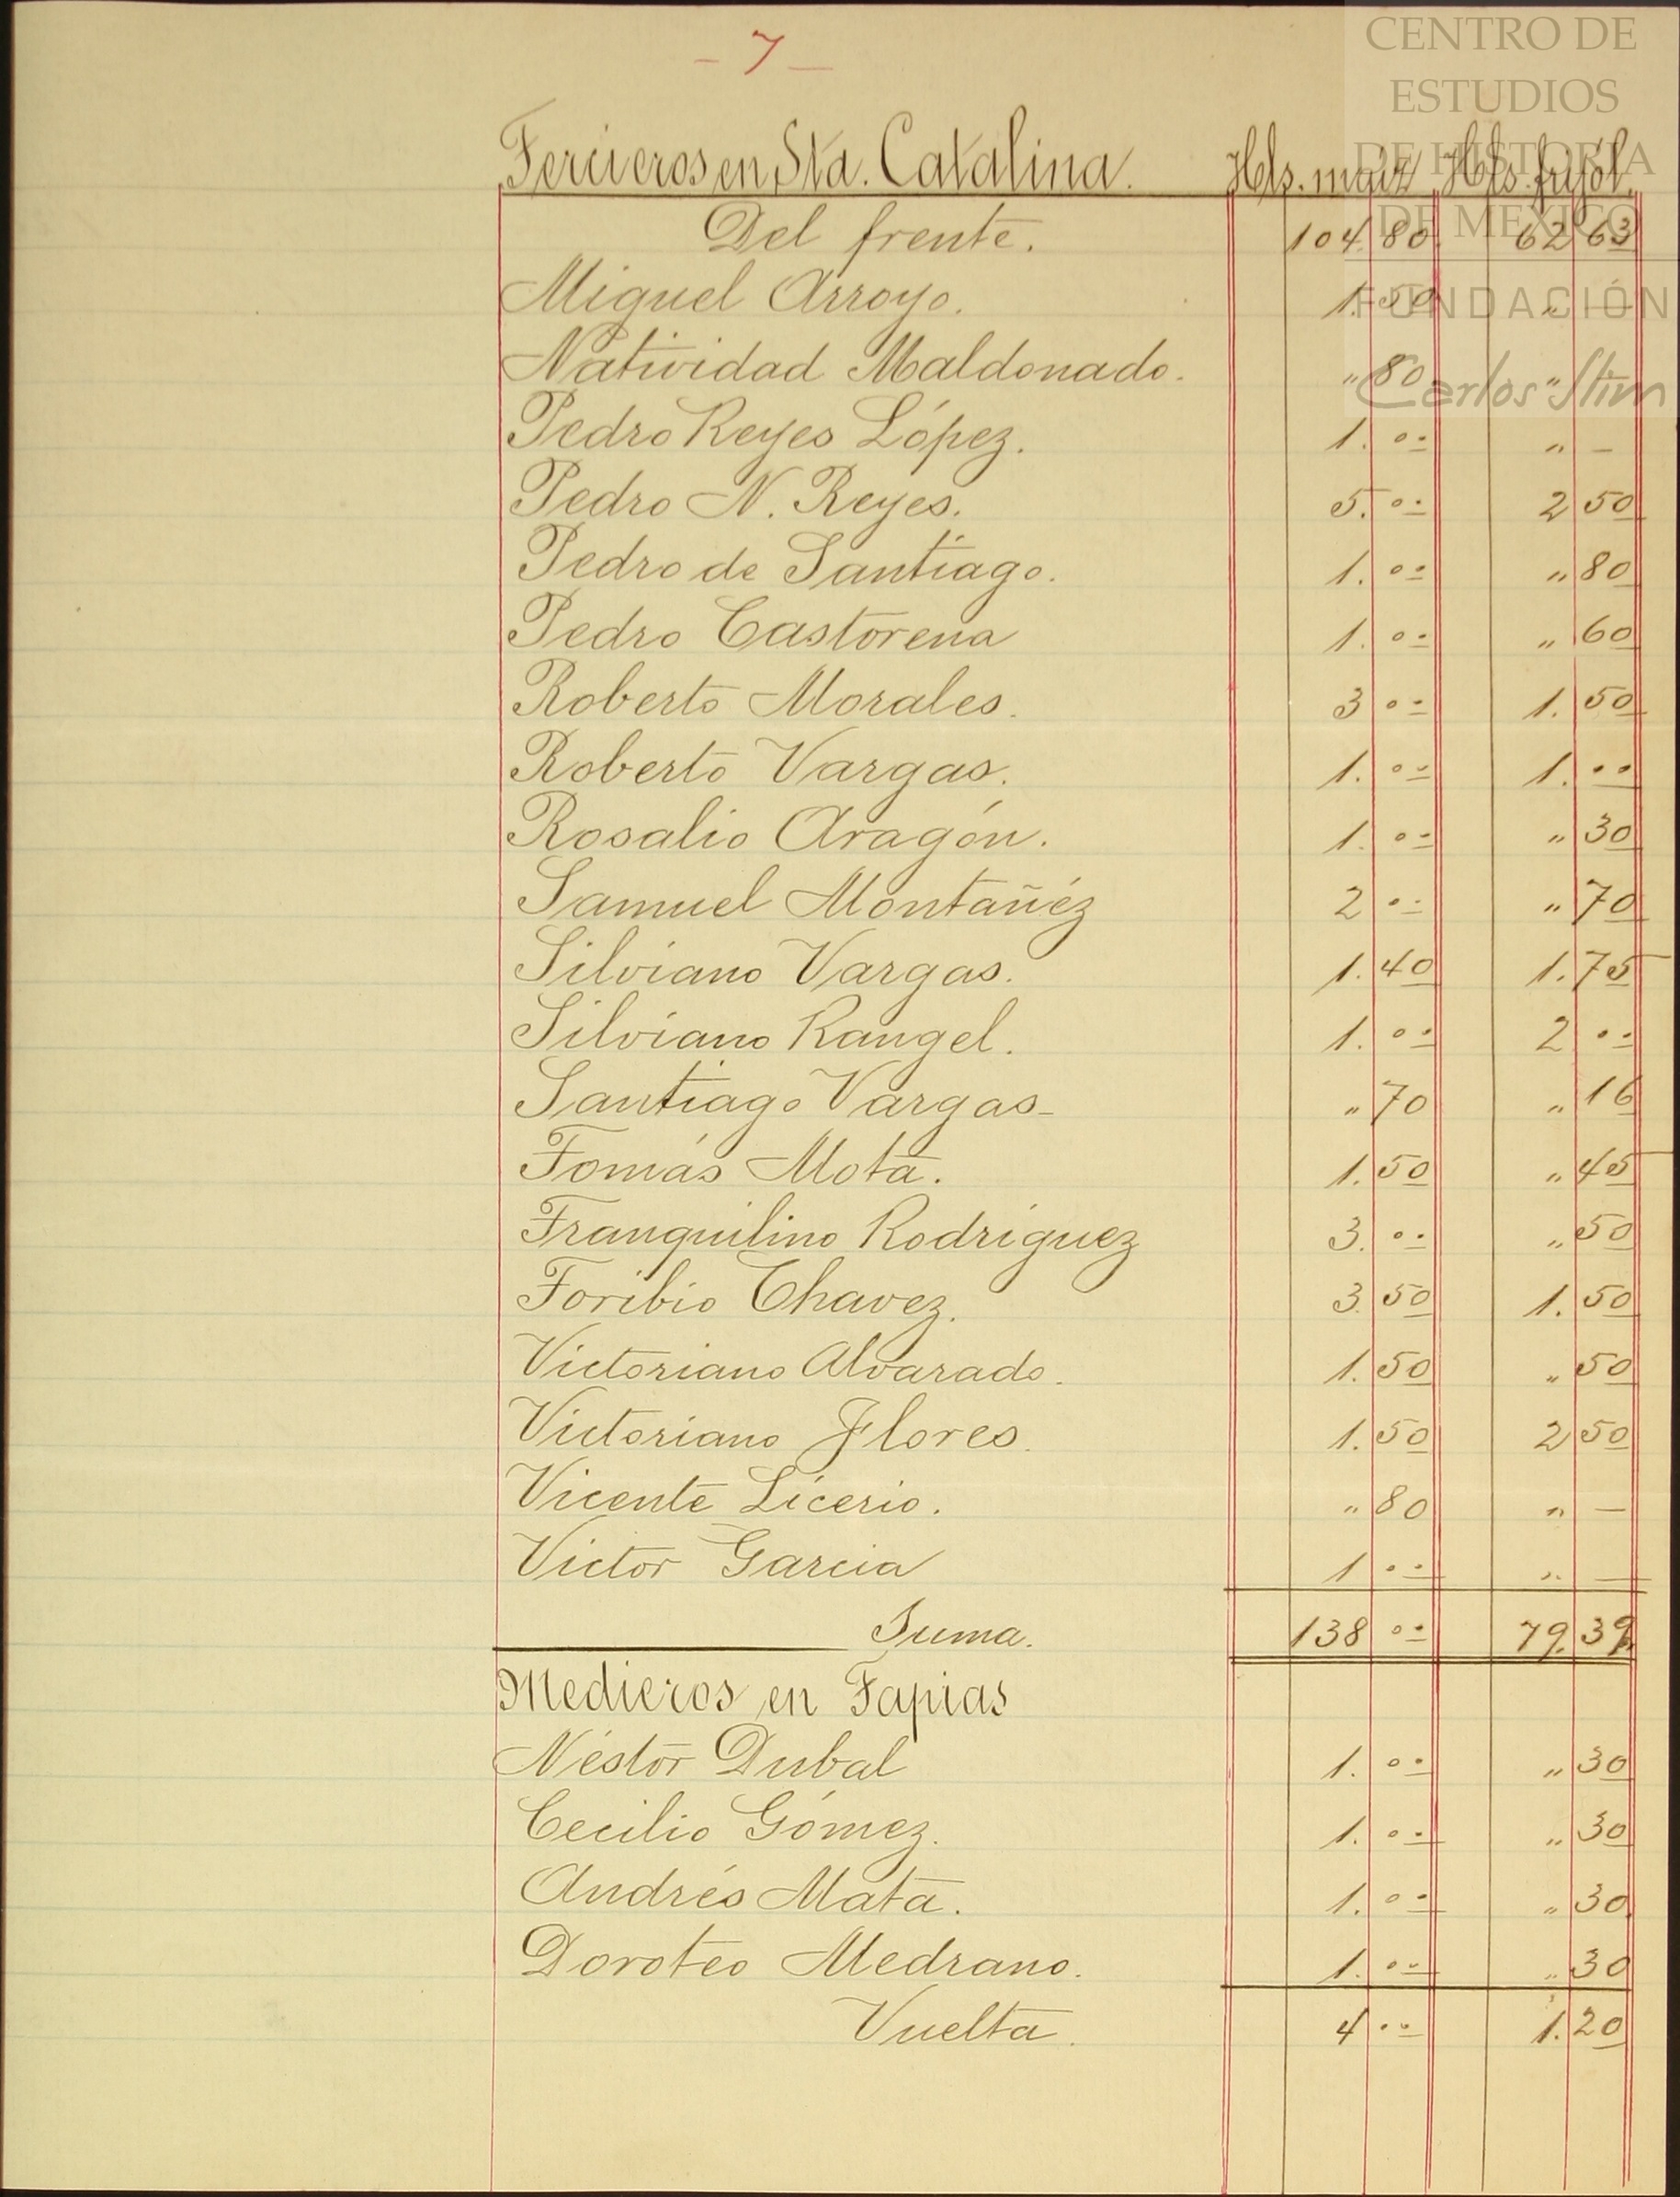 - 7 -
CENTRO DE
ESTUDIOS
DE HISTORIA
DE MÉXICO
FUNDACIÓN
Carlos Slim
Tercieros en Sta. Catalina. Hls. maiz Hls. frijol.
Del frente. 104 80 62 63
Miguel Arroyo. 1. 50 „ —
Natividad Maldonado. „ 80 „ —
Pedro Reyes López. 1. 00 „ —
Pedro N. Reyes. 5. 00 2 50
Pedro de Santiago. 1. 00 „ 80
Pedro Castorena 1. 00 „ 60
Roberto Morales. 3 00 1. 50
Roberto Vargas. 1. 00 1. 00
Rosalio Aragón. 1. 00 „ 30
Samuel Montañéz 2 00 „ 70
Silviano Vargas. 1. 40 1. 75
Silviano Rangel. 1. 00 2 00
Santiago Vargas- „ 70 „ 16
Tomás Mota. 1. 50 „ 45
Tranquilino Rodríguez 3. 00 „ 50
Toribio Chavez. 3. 50 1. 50
Victoriano Alvarado. 1. 50 „ 50
Victoriano Flores. 1. 50 2 50
Vicente Licerio. „ 80 „ —
Victor Garcia 1 00 „ —
Suma. 138 00 79. 39
Medieros en Tapias
Néstor Dubal 1. 00 „ 30
Cecilio Gómez. 1. 00 „ 30
Andrés Mata. 1. 00 „ 30
Doroteo Medrano. 1. 00 „ 30
Vuelta. 4 00 1. 20